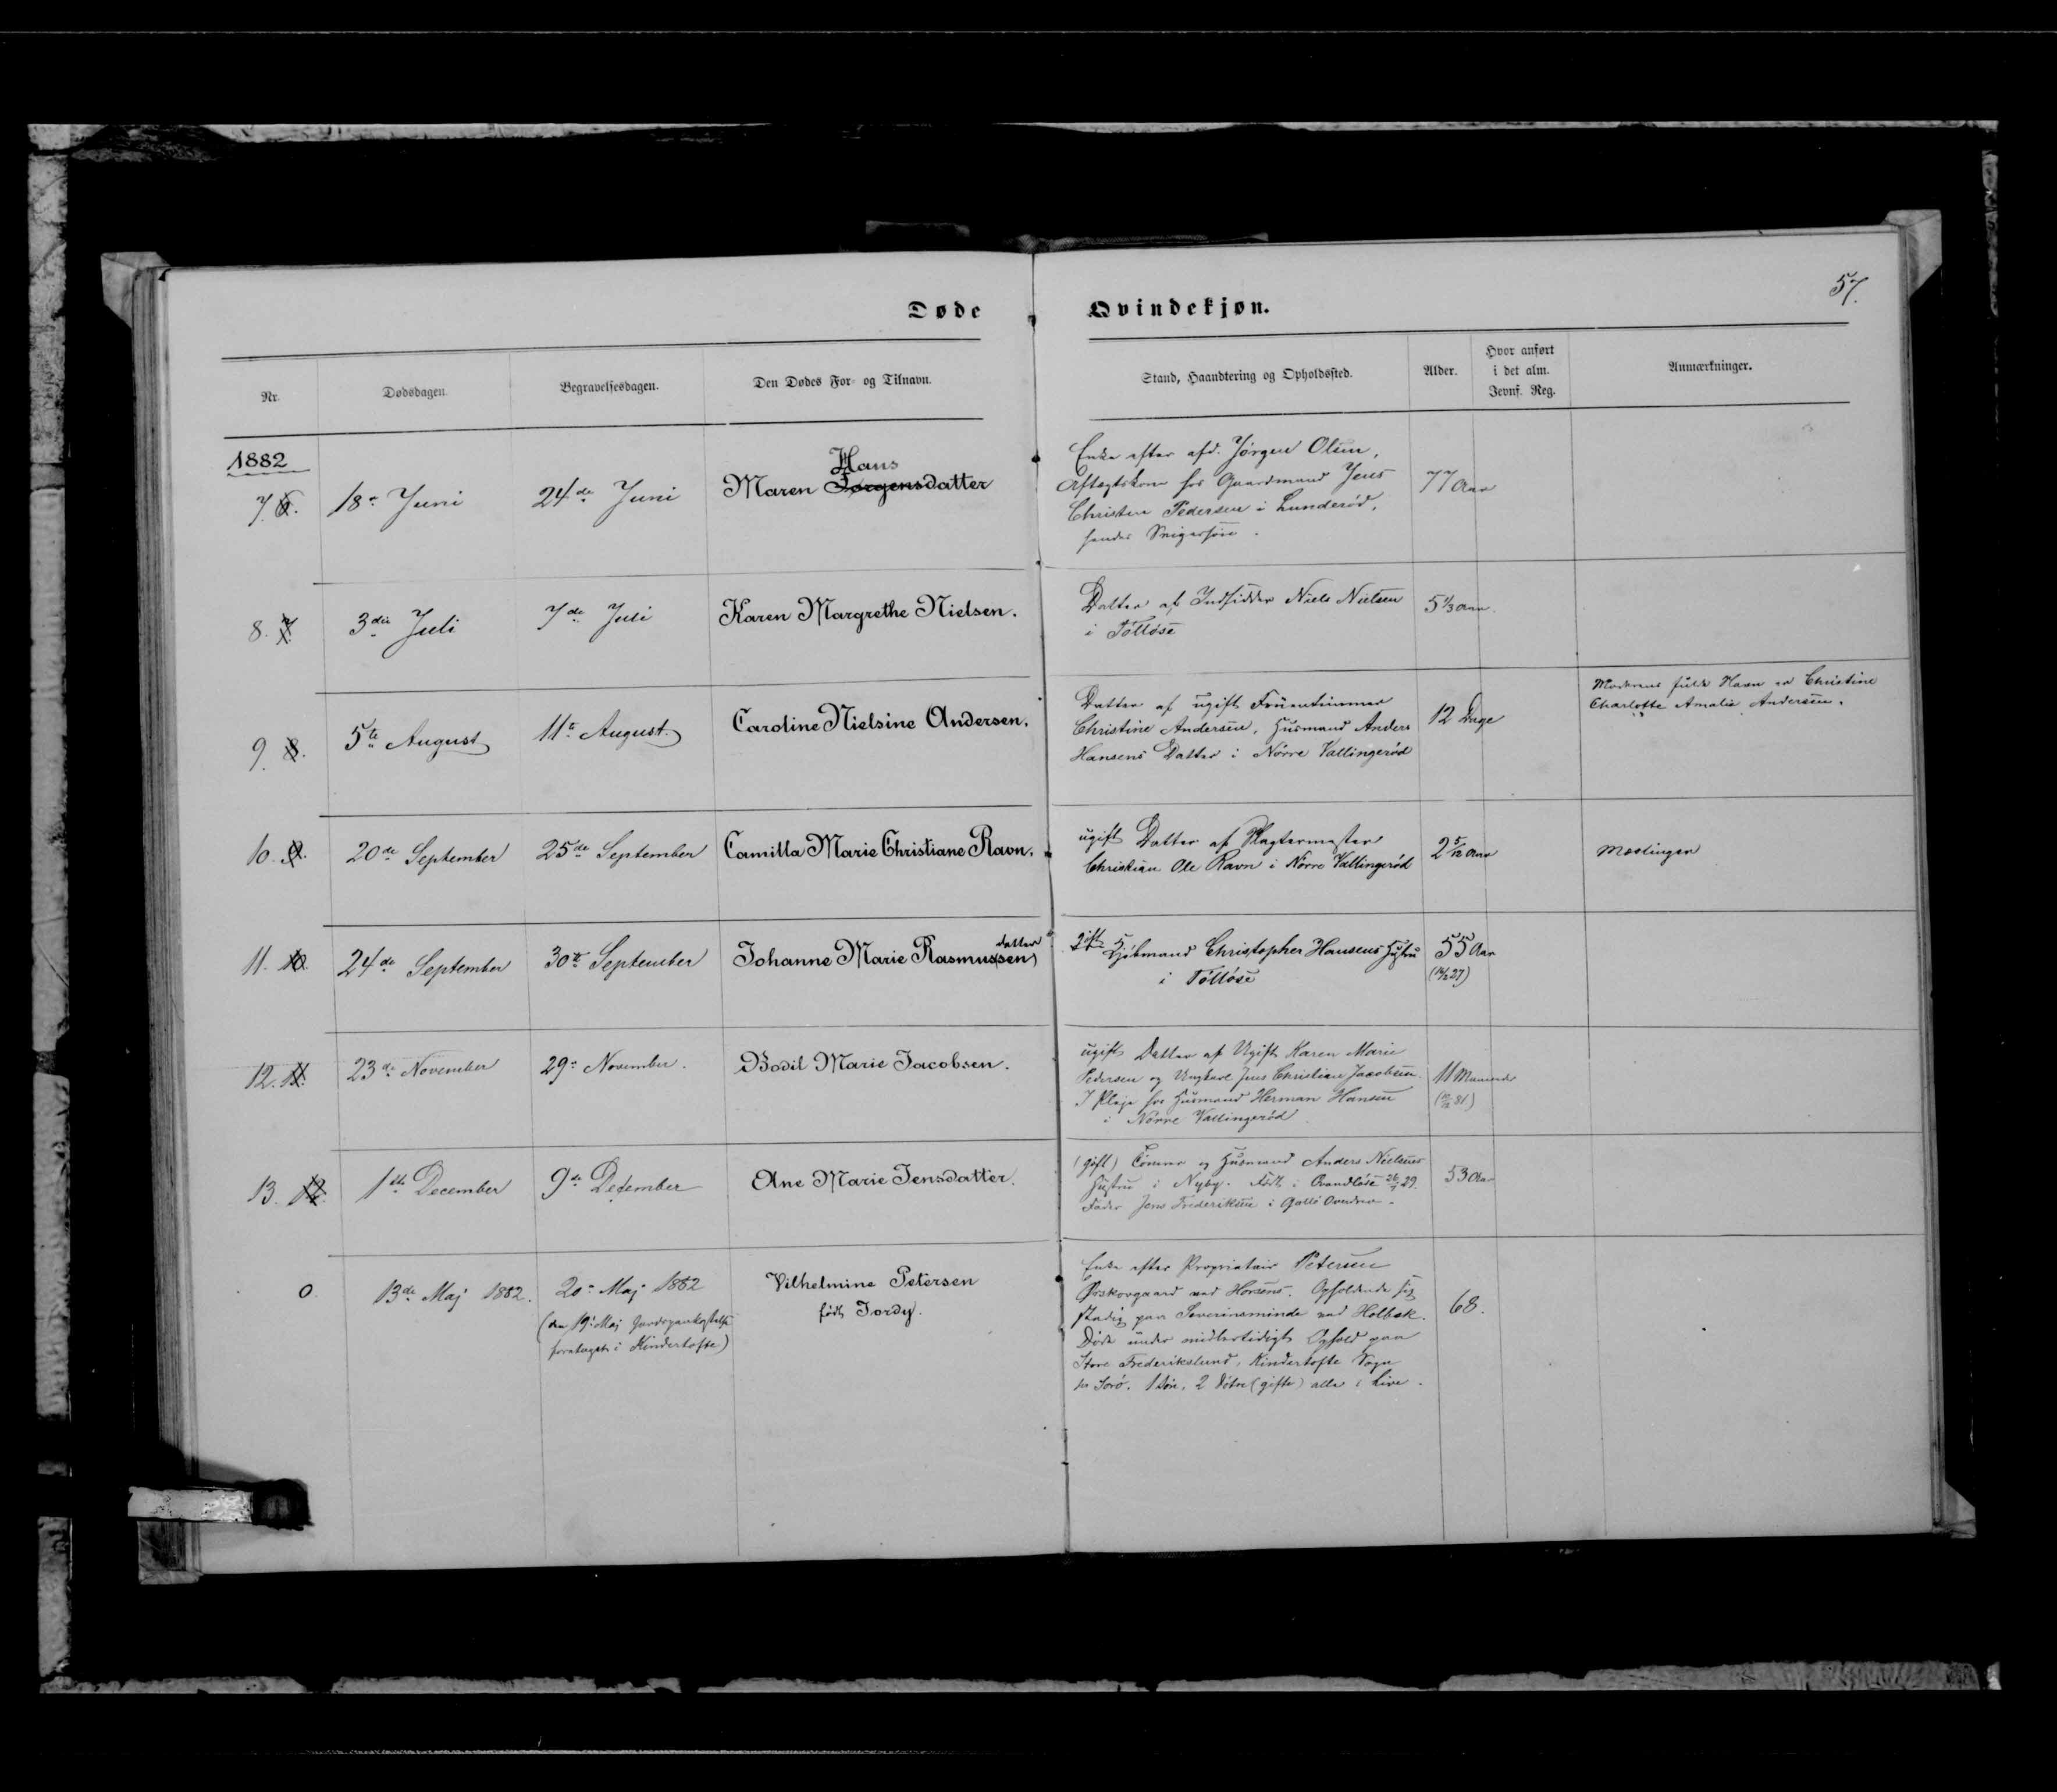 57.
Døde Qvindekjøn.
Nr. Dødsdagen. Begravelsesdagen. Den Dødes For- og Tilnavn. Stand, Haandtering og Opholdssted. Alder. Hvor anført i det alm. Jevnf. Reg. Anmærkninger.
1882
7. 6. 18e Juni 24de Juni Maren Jørgensdatter
Hans
Enke efter afd. Jørgen Olsen,
Aftægtskone hos Gaardmand Jens
Christen Pedersen i Lunderød,
hendes Svigersøn.
77 Aar
8. 7. 3die Juli 7de Juli Karen Margrethe Nielsen.
Datter af Indsidder Niels Nielsen
i Tølløse
5 1/3 Aar.
9. 8. 5te August 11te August. Caroline Nielsine Andersen.
Datter af ugift Fruentimmer
Christine Andersen, Husmand Anders
Hansens Datter i Nørre Vallingerød
12 Dage
Moderens fulde Navn er Christine
Charlotte Amalie Andersen.
10. 9. 20de September 25de September Camilla Marie Christiane Ravn.
ugift Datter af Slagtermester
Christian Ole Ravn i Nørre Vallingerød
2 5/12 Aar
Mæslinger
11. 10. 24de September 30te September Johanne Marie Rasmus(sen)
datter
gift Hjulmand Christopher Hansens Hustru
i Tølløse
55 Aar
12. 11. 23de November 29e November. Bodil Marie Jacobsen.
ugift Datter af Ugift Karen Marie
Pedersen og Ungkarl Jens Christian Jacobsen.
I Pleje hos Husmand Herman Hansen
i Nørre Vallingerød
11 Maaneder
13. 12. 1ste December 9de December Ane Marie Jensdatter.
(gift) Tømrer og Husmand Anders Nielsens
Hustru i Nyby. Født i Qvandløse 29.
Fader Jens Frederiksen i Overdrev.
53 Aar
0. 13de Maj 1882. 20e Maj 1882
(den 19e Maj Jordpaakastelse
foretaget i Kindertofte)
Vilhelmine Petersen
født Jordy.
Enke efter Proprietair Petersen
Ørskovgaard ved Horsens. Opholdende sig
stadig paa Severinsminde ved Holbæk.
Døde under midlertidigt Ophold paa
Store Frederikslund, Kindertofte Sogn
pr Sorø. 1 Søn, 2 Døtre (gifte) alle i Live.
68.